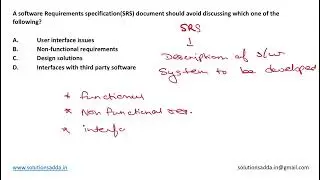 A software Requirements specification(SRS) document should avoid discussing which one of the
following?
SRS
A. User interface issues
B. Non-functional requirements
C. Design solutions
D. Interfaces with third party software
Description of S/w
System to be developed
* functional
* Non functional req.
* interfa
www.solutionsadda.in
solutionsadda.in@gmail.com